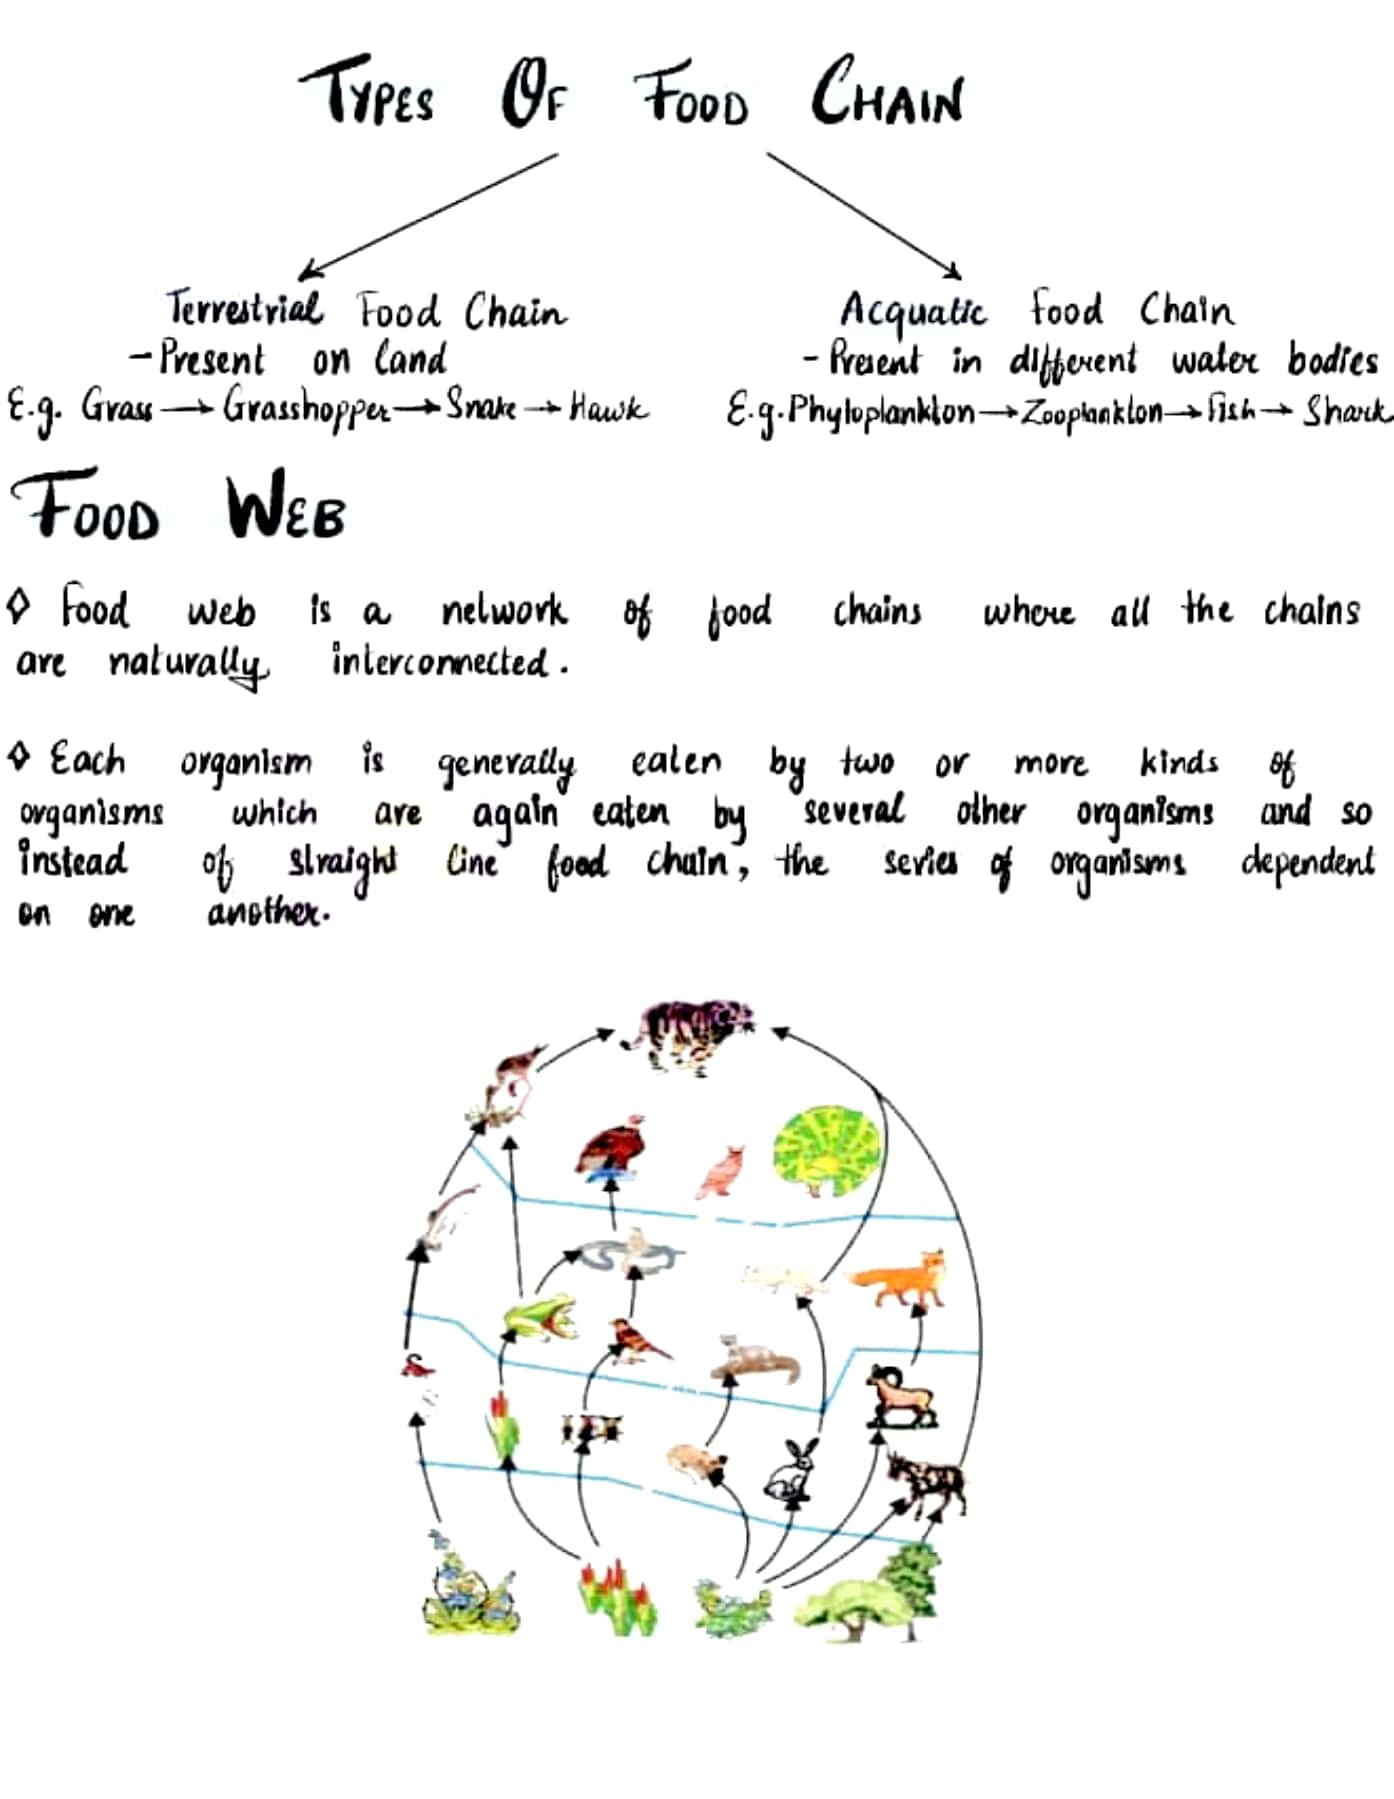 TYPES OF FOOD CHAIN
Terrestrial Food Chain
Acquatic food Chain
- Present on land
- Present in different water bodies
E.g. Grass → Grasshopper → Snake → Hawk
E.g. Phytoplankton → Zooplankton → Fish → Shark
FOOD WEB
◊ Food web is a network of food chains where all the chains
are naturally interconnected.
◊ Each organism is generally eaten by two or more kinds of
organisms which are again eaten by several other organisms and so
instead of straight line food chain, the series of organisms dependent
on one another.